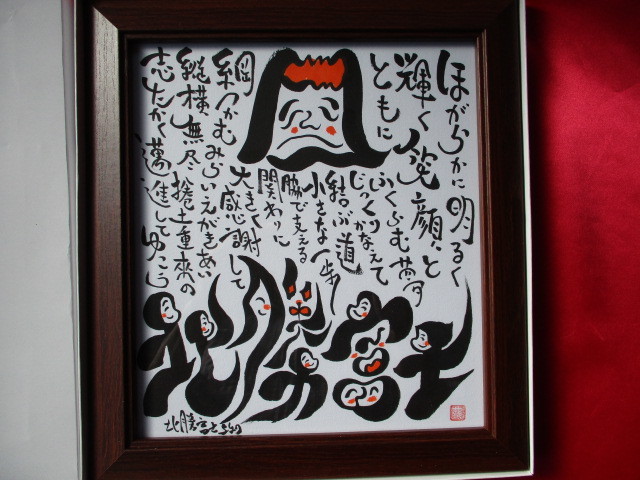 ほがらかに明るく
輝く姿顔と
ともに
ふくらむ夢
じっくりかなえて
結ぶ道
小さな一歩
脇で支える
関わりに
大きく感謝して
綱つかむみらいえがきあい
縦横無尽捲土重来の
志たかく邁進してゆこう
北勝富士
北勝富士